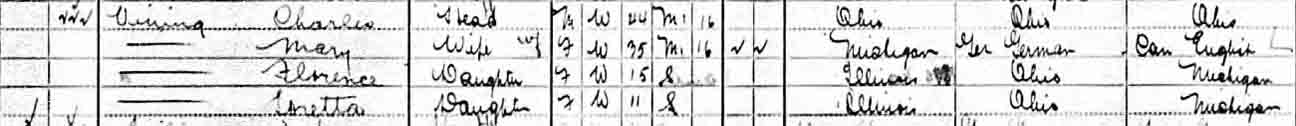 Vining Charles Head M W 44 M1 16 Ohio Ohio Ohio
— Mary Wife F W 35 M1 16 Michigan Ger German Can English
— Florence Daughter F W 15 S Illinois Ohio Michigan
— Loretta Daughter F W 11 S Illinois Ohio Michigan